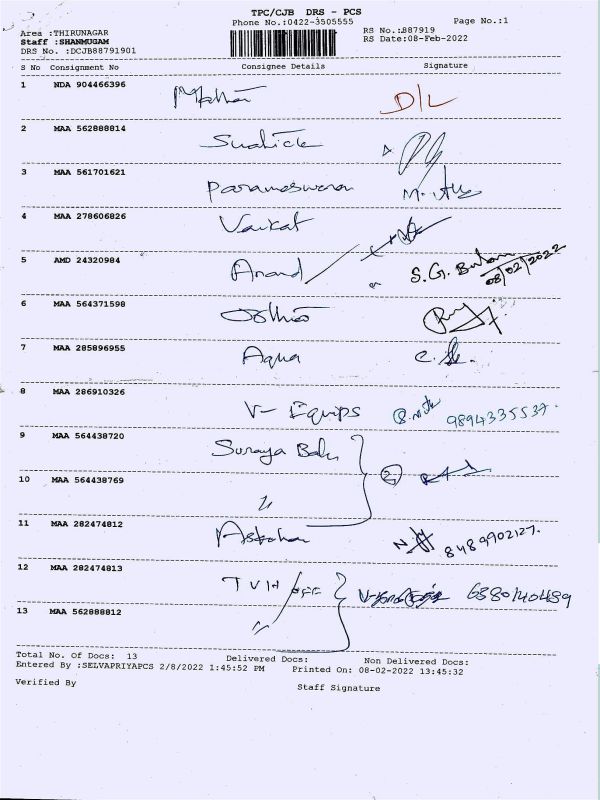 TPC/CJB DRS - PCS
Phone No.:0422-3505555 Page No.:1
Area :THIRUNAGAR RS No.:887919
Staff :SHANMUGAM RS Date:08-Feb-2022
DRS No. :DCJB88791901
S No Consignment No Consignee Details Signature
1 NDA 904466396 D/L
2 MAA 562888814
3 MAA 561701621 Parameswaran
4 MAA 278606826 Vaikat
5 AMD 24320984 Anand S.G. 08/02/2022
6 MAA 564371598
7 MAA 285896955 Aqua
8 MAA 286910326 V- Equips 9894335537.
9 MAA 564438720 Suraya
10 MAA 564438769 2
11 MAA 282474812 8489902127.
12 MAA 282474813 TVH 6380140489
13 MAA 562888812
Total No. Of Docs: 13 Delivered Docs: Non Delivered Docs:
Entered By :SELVAPRIYAPCS 2/8/2022 1:45:52 PM Printed On: 08-02-2022 13:45:32
Verified By Staff Signature